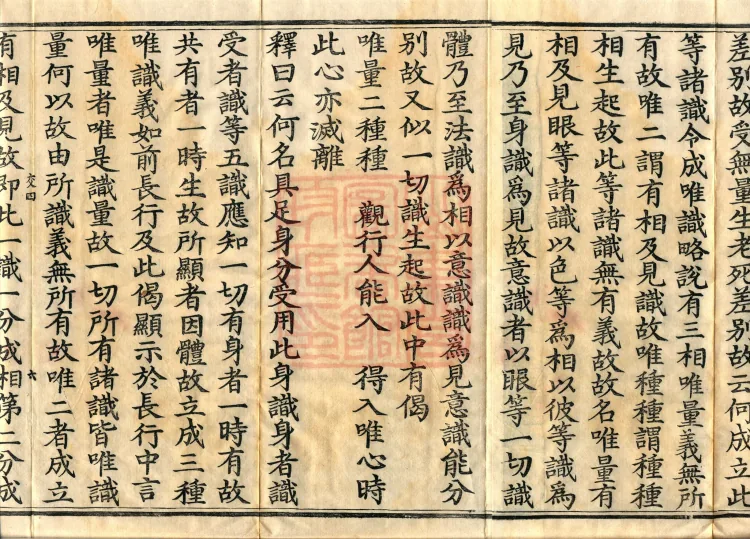 差別故受無量生老死差別故云何成立此
等諸識令成唯識略說有三相唯量義無所
有故唯二謂有相及見識故唯種種謂種種
相生起故此等諸識無有義故故名唯量有
相及見眼等諸識以色等為相以彼等識為
見乃至身識為見故意識者以眼等一切識
體乃至法識為相以意識識為見意識能分
別故又似一切識生起故此中有偈
唯量二種種　觀行人能入　得入唯心時
此心亦滅離
釋曰云何名具足身分受用此身識身者識
受者識等五識應知一切有身者一時有故
共有者一時生故所顯者因體故立成三種
唯識義如前長行及此偈顯示於長行中言
唯量者唯是識量故一切所有諸識皆唯識
量何以故由所識義無所有故唯二者成立
交四　六
有相及見故即此一識一分成相第二分成